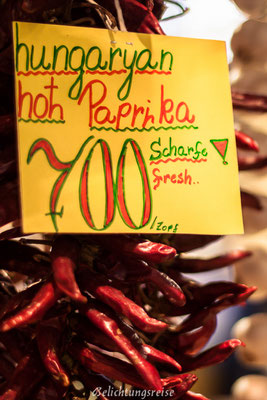 hungaryan
hot Paprika
700
Scharfe
fresh..
/Zopf
Belichtungsreise